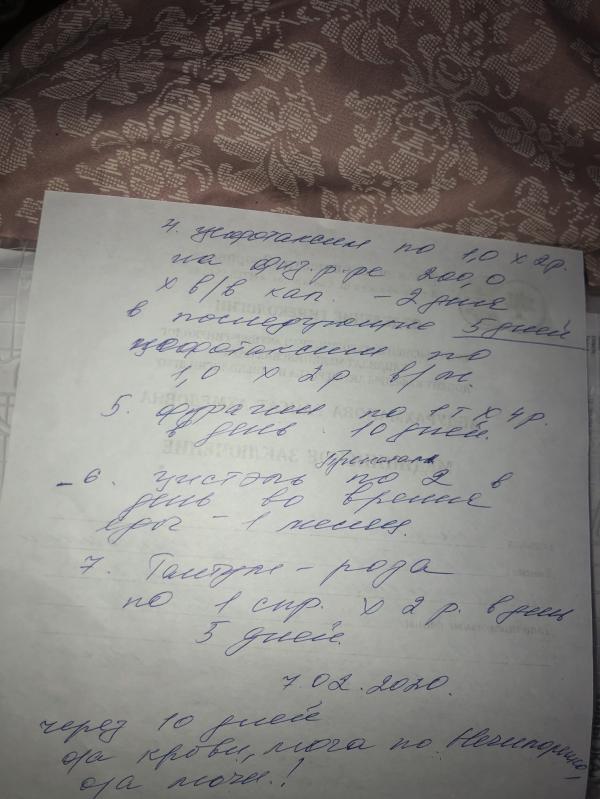 4. цефотаксим по 1,0 х 2р.
на физ. р-ре 200,0
х в/в кап. - 2 дня
в последующие 5 дней
цефотаксим по
1,0 х 2 р в/м.
5. фурагин по 1т х 4 р.
в день 10 дней.
- 6. цистэль по 2 в
день во время
еды - 1 месяц.
7. Тантум - роза
по 1 спр. х 2 р. в день
5 дней.
7.02.2020.
через 10 дней
оа крови, моча по Нечипоренко,
оа мочи!